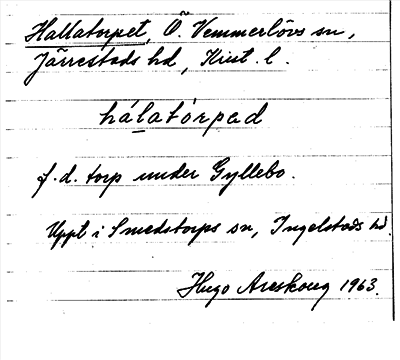 Hallatorpet, Ö. Vemmerlövs sn,
Järrestads hd, Krist. l.
hálatòrpad
f.d. torp under Gyllebo.
Uppt i Smedstorps sn, Ingelstads hd.
Hugo Areskoug 1963.